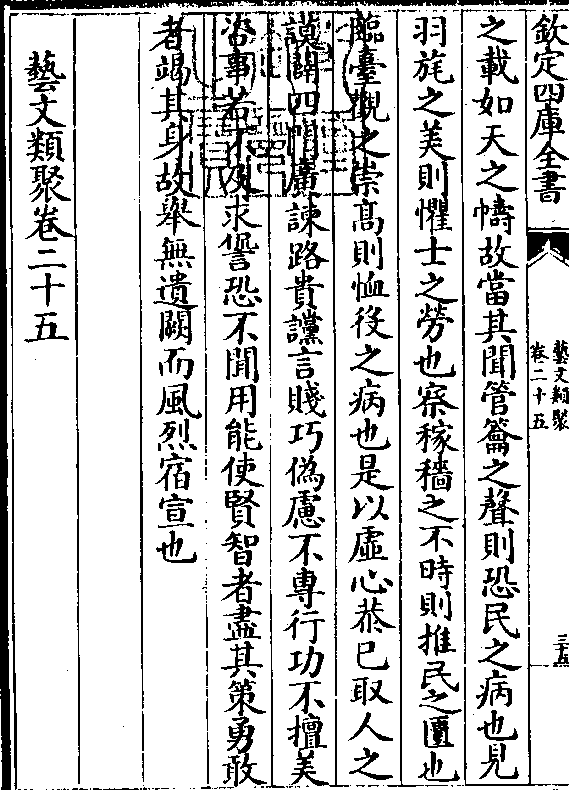 欽定四庫全書
藝文類聚
卷二十五
三十五
之載如天之幬故當其聞管籥之聲則恐民之病也見
羽旄之美則懼士之勞也察稼穡之不時則推民之匱也
臨臺觀之崇高則恤役之病也是以虛心恭己取人之
謨闢四門廣諫路貴讜言賤巧偽慮不專行功不擅美
咨事若不及求諐恐不聞用能使賢智者盡其策勇敢
者竭其身故舉無遺闕而風烈宿宣也
藝文類聚卷二十五